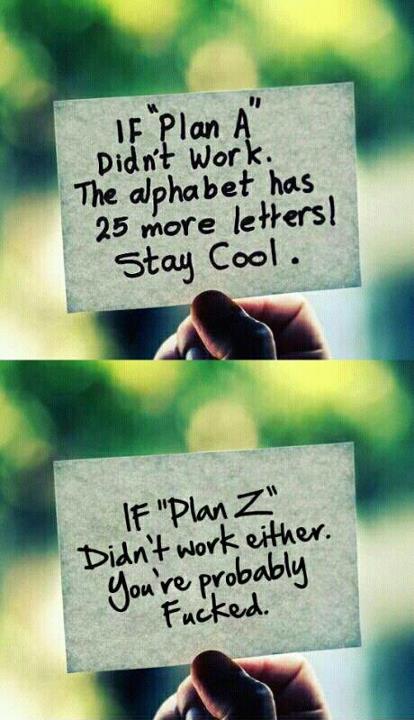 IF "Plan A"
Didn't Work.
The alphabet has
25 more letters!
Stay Cool.
IF "Plan Z"
Didn't work either.
You're probably
Fucked.